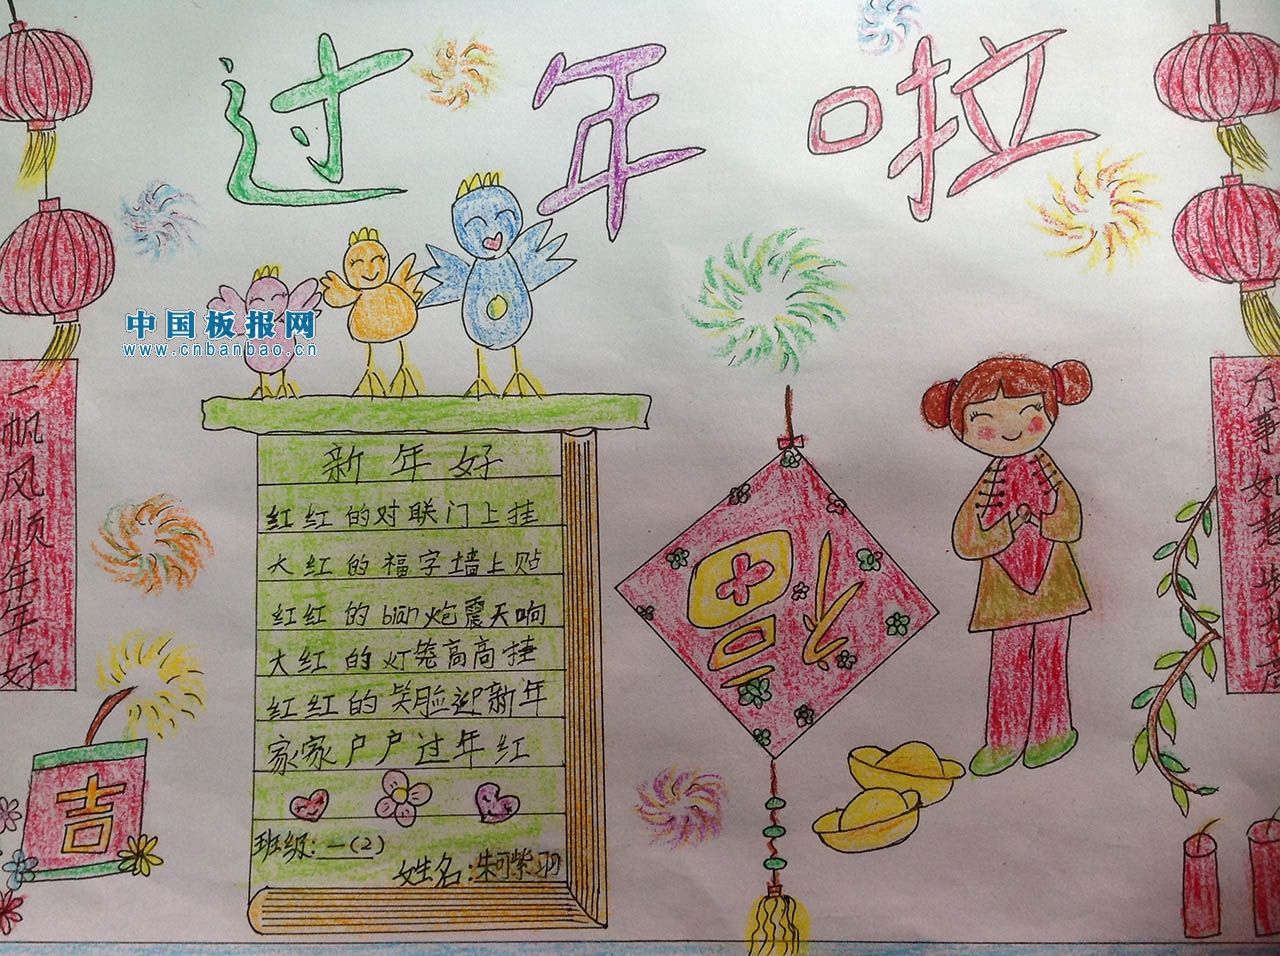 过年啦
中国板报网
www.cnbanbao.cn
一帆风顺年年好
新年好
红红的对联门上挂
大红的福字墙上贴
红红的biān炮震天响
大红的灯笼高高挂
红红的笑脸迎新年
家家户户过年红
班级:一(2)
姓名:
福
吉
万事如意步步高